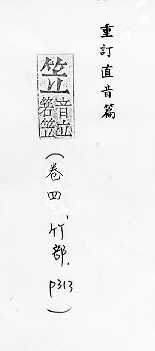 重訂直音篇
笠
音立
笠
(卷四、竹部, p313)